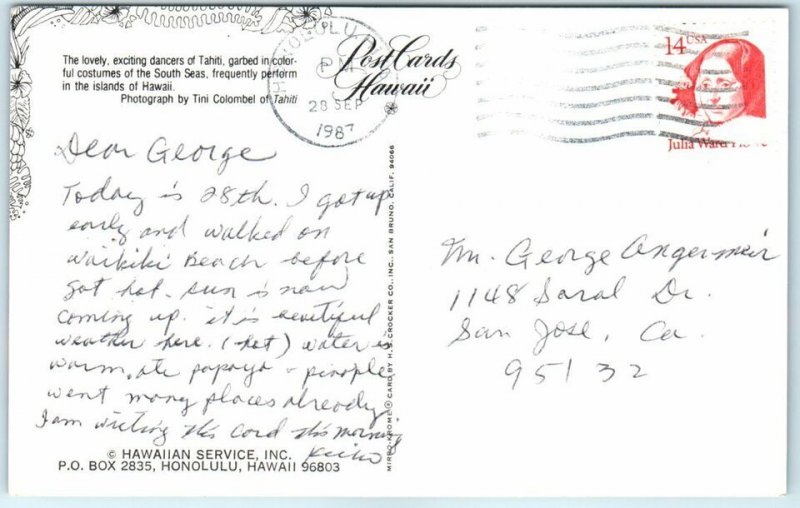 The lovely, exciting dancers of Tahiti, garbed in color-
ful costumes of the South Seas, frequently perform
in the islands of Hawaii.
Photograph by Tini Colombel of Tahiti
Post Cards
Hawaii
HONOLULU
PM
28 SEP
1987
14 USA
Julia Ward Howe
Dear George
Today is 28th. I got up
early and walked on
Waikiki Beach before
got hot. sun is now
coming up. it is beautiful
weather here. (hot) water is
warm, ate papaya -
went many places already
I am writing this card this morning
Keiko
Mr. George Angermeir
1148 Saral Dr.
San Jose, Ca.
95132
MIRRO-KROME ® CARD BY H.S. CROCKER CO., INC., SAN BRUNO, CALIF. 94066
© HAWAIIAN SERVICE, INC.
P.O. BOX 2835, HONOLULU, HAWAII 96803